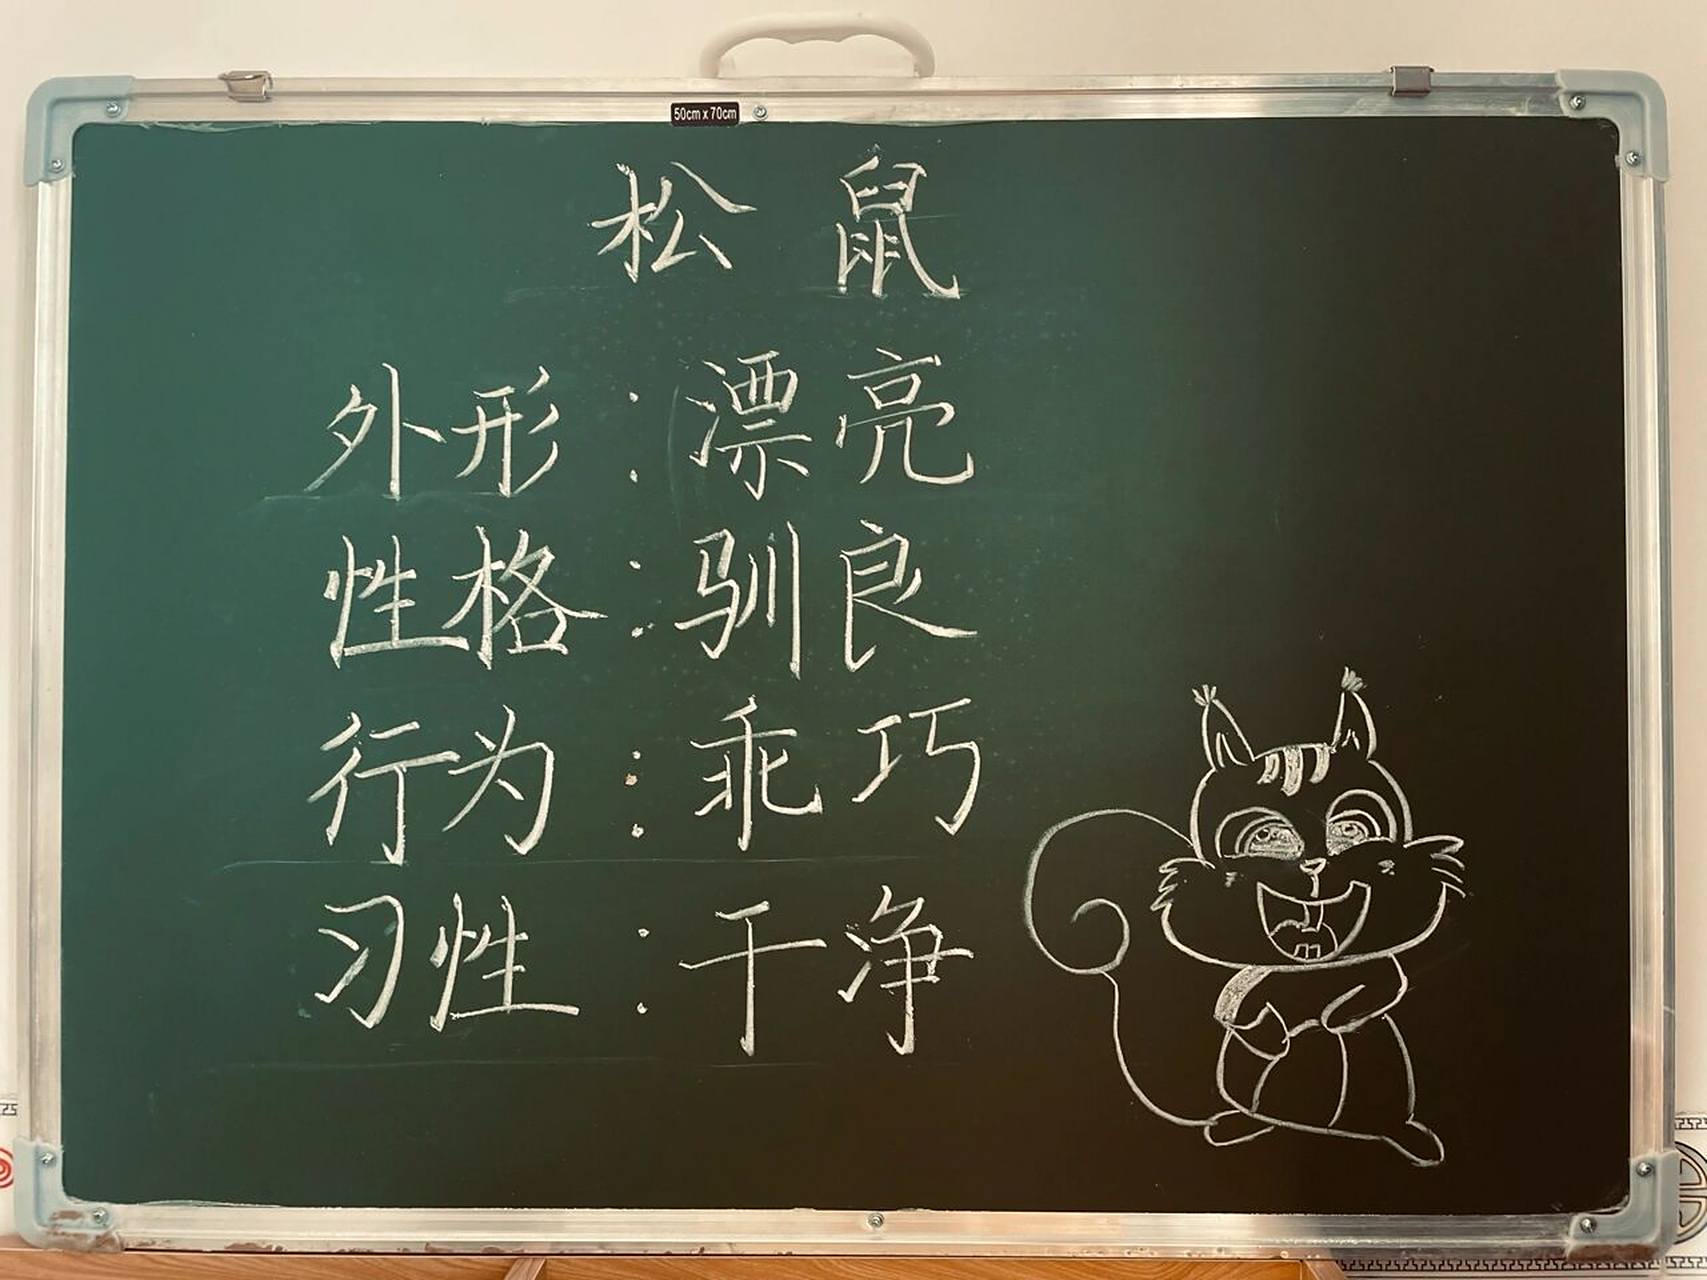 50cm x 70cm
松 鼠
外形：漂亮
性格：驯良
行为：乖巧
习性：干净